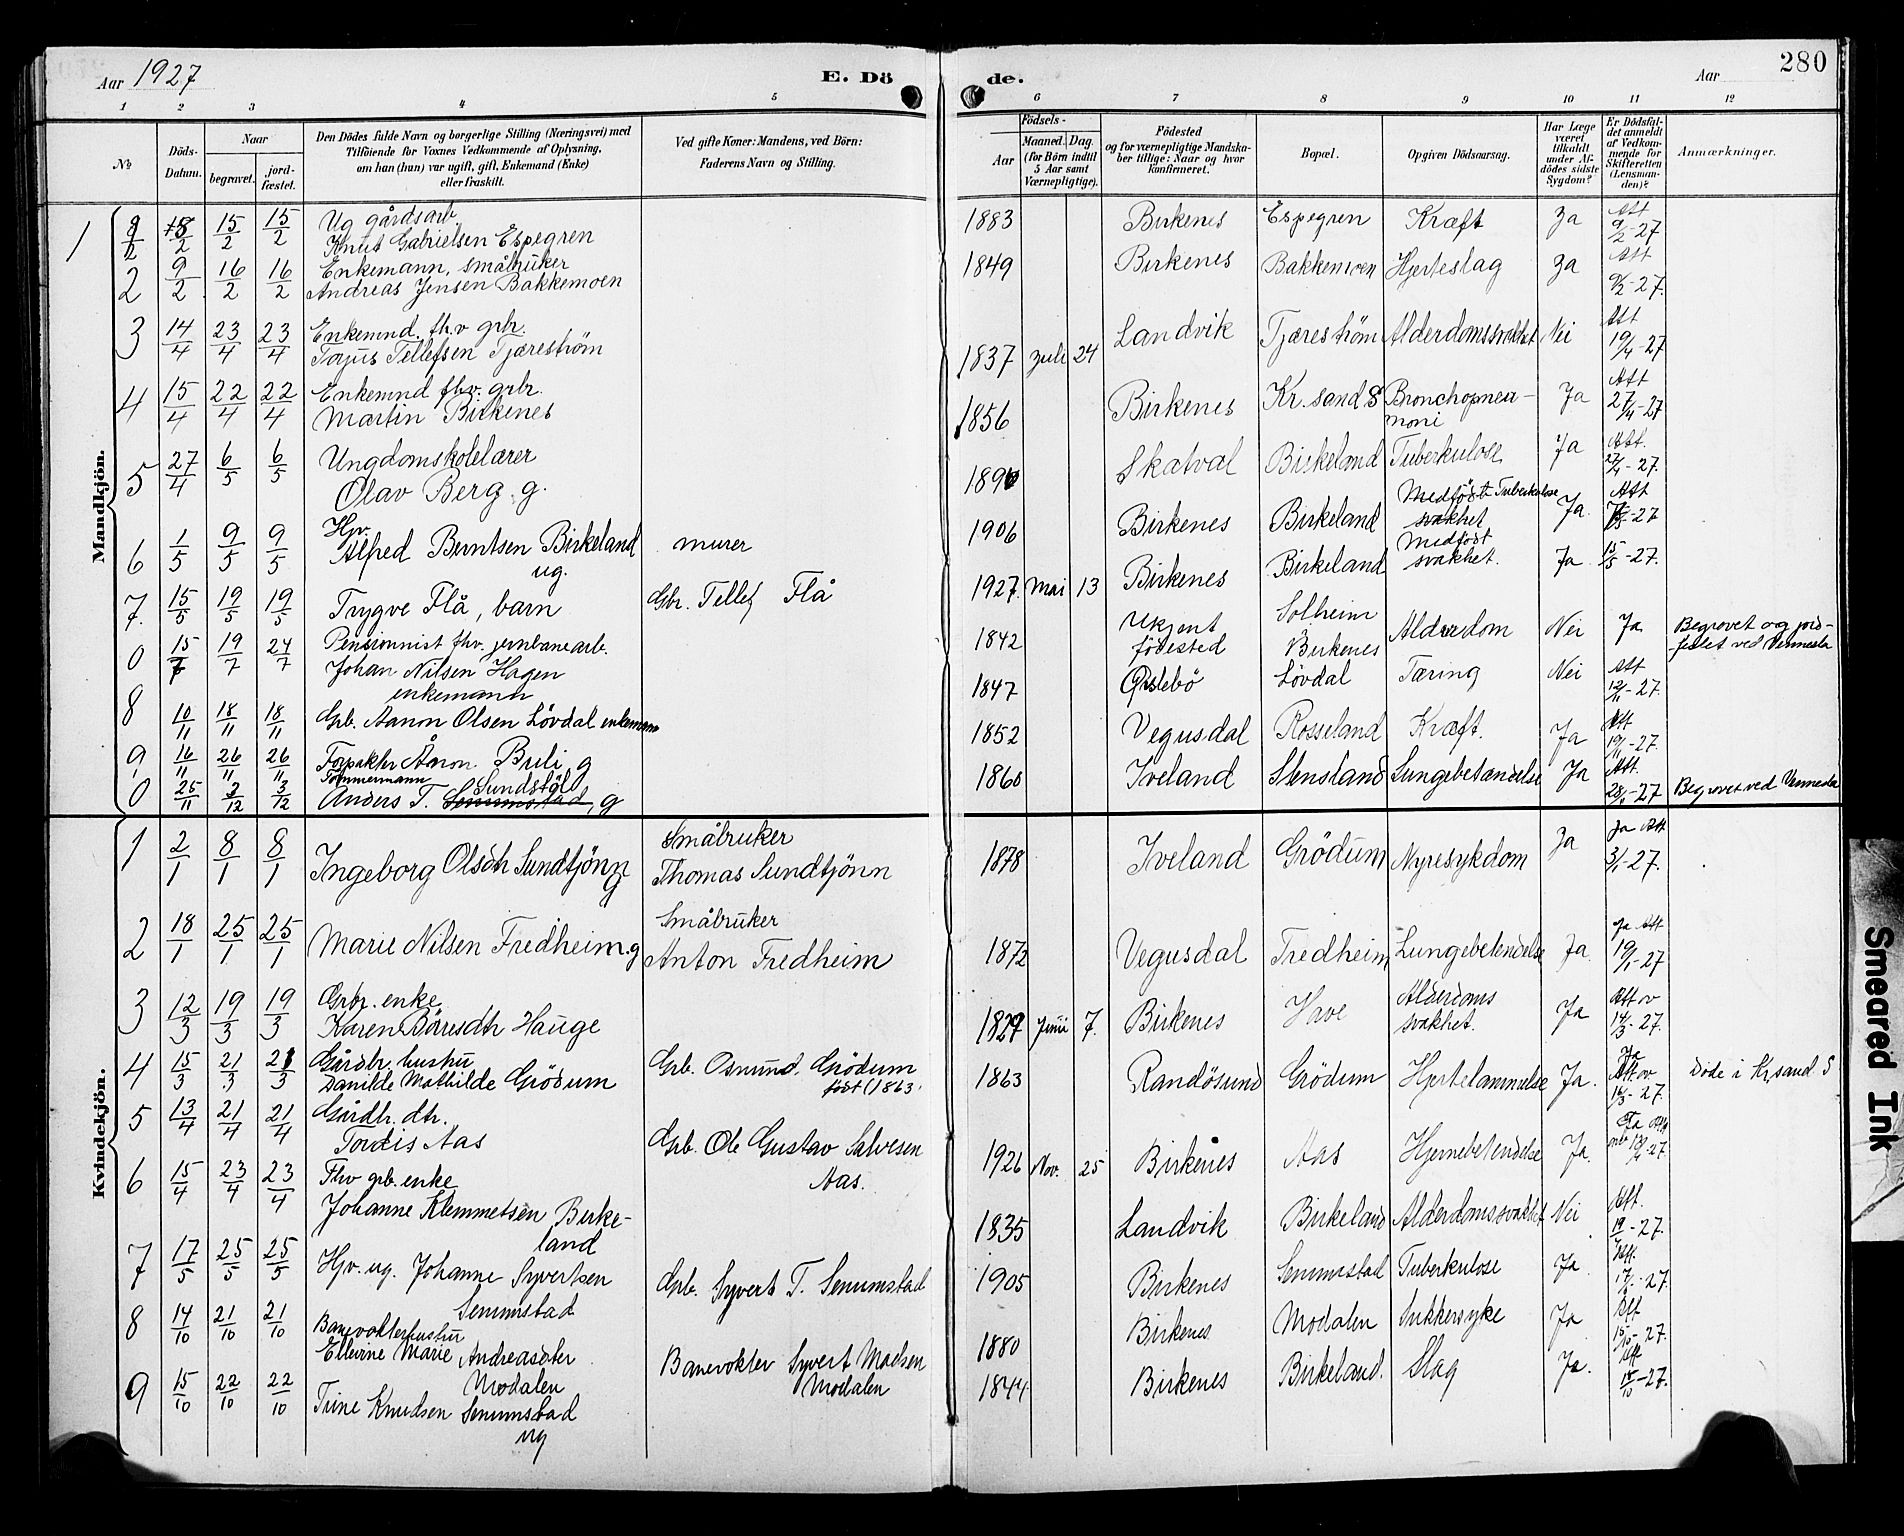 Aar 1927
E. Dö
de.
Aar
280
1 2 3 4 5 6 7 8 9 10 11 12
No
Döds-Datum.
Naar
begravet.
jord-fæstet.
Den Dödes fulde Navn og borgerlige Stilling (Næringsvei) med
Tilföiende for Voxnes Vedkommende af Oplysning,
om han (hun) var ugift, gift, Enkemand (Enke)
eller fraskilt.
Ved gifte Koner: Mandens, ved Börn:
Faderens Navn og Stilling.
Födsels-
Aar
Maaned. Dag.
(for Börn indtil
5 Aar samt
Værnepligtige).
Födested
og for værnepligtige Mandska-
ber tillige: Naar og hvor
konfirmeret.
Bopæl.
Opgiven Dödsaarsag.
Har Læge
været
tilkaldt
under Af-
dödes sidste
Sygdom?
Er Dödsfal-
det anmeldt
af Vedkom-
mende for
Skifteretten
(Lensman-
den)?
Anmærkninger.
Mandkjön.
1 8/2 15/2 15/2 Ug gårdsarb
Knut Gabrielsen Espegren 1883 Birkenes Espegren Kræft Ja Att 9/2-27
2 9/2 16/2 16/2 Enkemann, småbruker
Andreas Jensen Bakkemoen 1849 Birkenes Bakkemoen Hjerteslag Ja Att 9/2-27.
3 14/4 23/4 23/4 Enkemnd. fh.v grbr.
Torjus Tellefsen Tjæreström 1837 Juli 24 Landvik Tjæreström Alderdomssvakhet Nei Att 19/4-27
4 15/4 22/4 22/4 Enkemnd fhv. grbr.
Martin Birkenes 1856 Birkenes Kr.sand S Bronchopneu-
moni Ja Att 27/4-27
5 27/4 6/5 6/5 Ungdomskolelærer
Olav Berg g. Skatval Birkeland Tuberkulose Ja Att. 27/4-27.
6 1/5 9/5 9/5 Hjv.
Alfred Berntsen Birkeland
ug. murer 1906 Birkenes Birkeland Tuberkulose Ja. Att
7. 15/5 19/5 19/5 Trygve Flå, barn Gbr. Tellef Flå 1927. Mai 13 Birkenes Birkeland Medföst
svakhet. Ja. 15/5-27.
0 15/7 19/7 24/7 Pensionnist fhv. jernbanearb.
Johan Nilsen Hagen
enkemann 1842 Ukjent
födested Solheim
Birkenes Alderdom Nei Ja Begravet og jord-
festet ved Vennesla
8 10/11 18/11 18/11 Grb. Aanon Olsen Lövdal enkemann 1847 Öislebö Lövdal Tæring Nei Att 12/11-27.
9 16/11 26/11 26/11 Forpakter Ånon Buli g 1852 Vegusdal Rosseland Kræft. Ja Att 19/11-27.
0 25/11 3/12 3/12 Tömmermann
Anders T. Sundstöl, g 1860 Iveland Stensland Lungebetændelse Ja Att. 28/11-27 Begravet ved Vennesla
Kvindekjön.
1 2/1 8/1 8/1 Ingeborg Olsdth Sundtjönn
g Småbruker
Thomas Sundtjönn 1878 Iveland Grödum Nyresykdom Ja Ja Att 3/1-27.
2 18/1 25/1 25/1 Marie Nilsen Fredheim. g Småbruker
Anton Fredheim 1872 Vegusdal Fredheim Lungebetendelse Ja Ja Att 19/1-27
3 12/3 19/3 19/3 Grbr. enke
Karen Börresdtr Hauge Juni 7. Birkenes Have Alderdoms
svakhet. Ja Att ov 14/3-27.
4 15/3 21/3 21/3 Gårdbr. hustru
Danilde Mathilde Grödum Grb. Osmund. Grödum
födt (1863. 1863 Randösund Grödum Hjertelammelse Ja. Ja Att ov. 16/3-27. Döde i Kr.sand S
5 13/4 21/4 21/4 Gårdbr. dtr.
Tordis Aas Grb. Ole Gustav Salvesen
Aas. 1926 Nov. 25 Birkenes Aas Hjernebetendelse Ja. Ja Att
6 15/4 23/4 23/4 Fhv grb. enke
Johanne Klemmetsen Birke-
land 1835 Landvik Birkeland Alderdomssvakhet Nei Att. 19/4-27.
7 17/5 25/5 25/5 Hjv. ug. Johanne Syvertsen
Senumstad Grb. Syvert T. Senumstad 1905 Birkenes Senumstad Tuberkulose Ja. Att.
8 14/10 21/10 21/10 Banevokterhustru
Ellevine Marie Andreasdter
Modalen Banevokter Syvert Madsen
Modalen 1880 Birkenes Modalen Sukkersyke Ja Att 15/10-27.
9 15/10 22/10 22/10 Tine Knudsen Senumstad
ug 1844 Birkenes Birkeland. Slag Ja. Att 18/10-27.
Smeared Ink